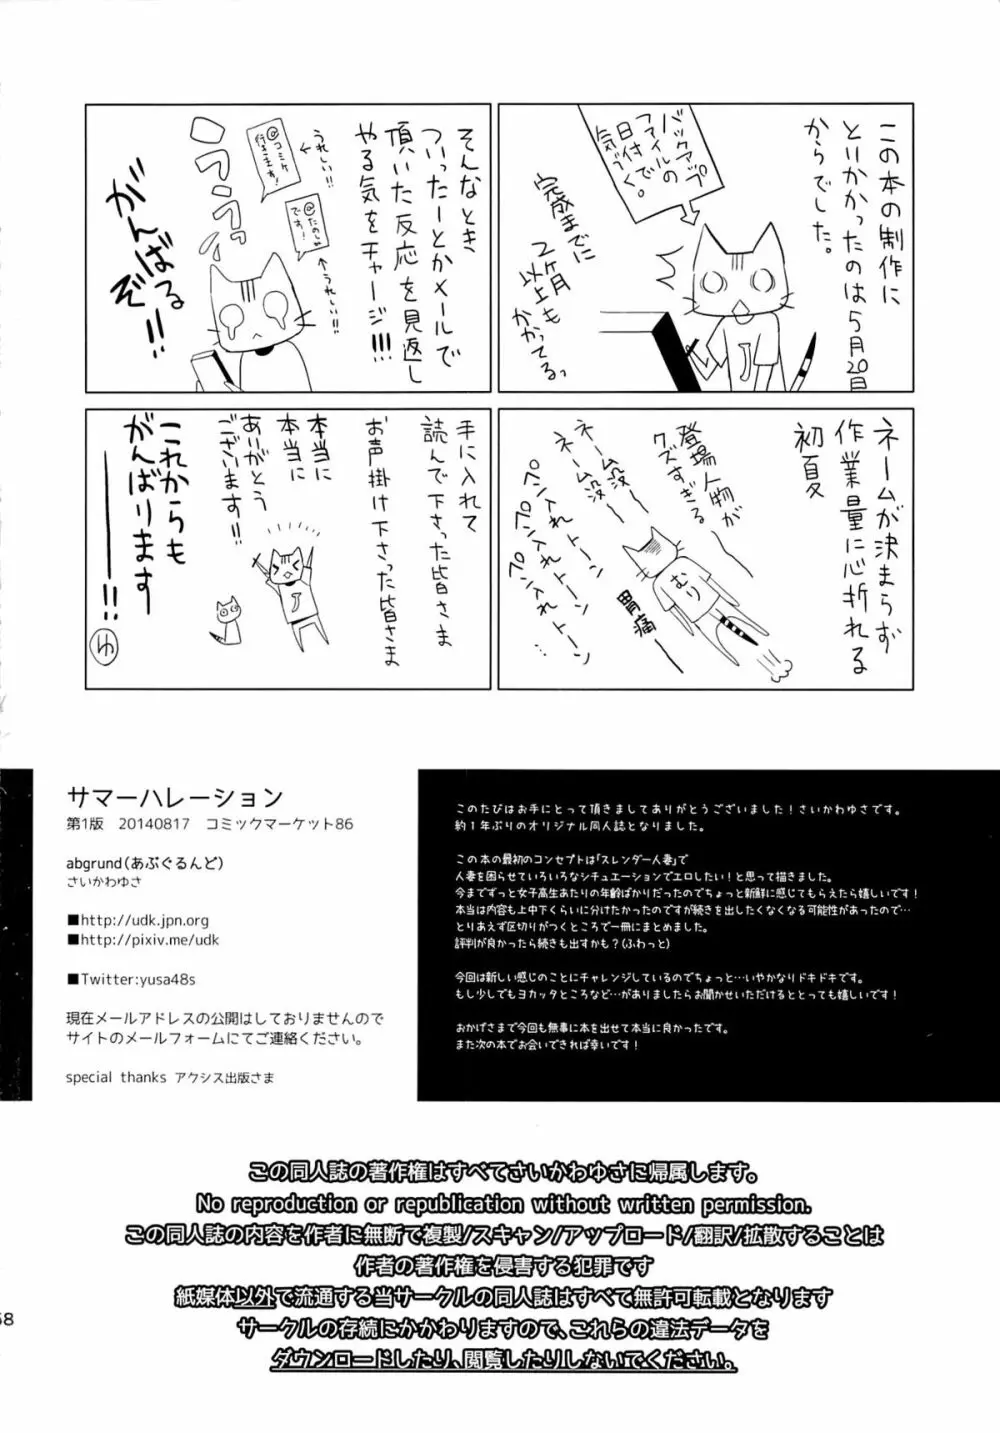 この本の制作に
とりかかったのは5月20日
からでした。
バックアップ
ファイルの
日付で
気づく。
完成までに
2ヶ月
以上も
かかってるっ
J
そんなとき
ついったーとかメールで
頂いた反応を見返し
やる気をチャージ!!!
うれしい!!
@コミケ
行きます!
@たのしみ
です!
うれしい!!
がんばる
ぞ!!
ネームが決まらず
作業量に心折れる
初夏
登場人物が
クズすぎる
ネーム没〜
ネーム没〜
ペン入れトーン
ペン入れトーン
むり
胃痛
手に入れて
読んで下さった皆さま
お声掛け下さった皆さま
本当に
本当に
ありがとう
ございます!!
J
これからも
がんばります
――!!
ゆ
サマーハレーション
第1版 20140817 コミックマーケット86
abgrund(あぶぐるんど)
さいかわゆさ
■http://udk.jpn.org
■http://pixiv.me/udk
■Twitter:yusa48s
現在メールアドレスの公開はしておりませんので
サイトのメールフォームにてご連絡ください。
special thanks アクシス出版さま
このたびはお手にとって頂きましてありがとうございました!さいかわゆさです。
約1年ぶりのオリジナル同人誌となりました。
この本の最初のコンセプトは「スレンダー人妻」で
人妻を困らせていろいろなシチュエーションでエロしたい!と思って描きました。
今までずっと女子高生あたりの年齢ばかりだったのでちょっと新鮮に感じてもらえたら嬉しいです!
本当は内容も上中下くらいに分けたかったのですが続きを出したくなくなる可能性があったので…
とりあえず区切りがつくところで一冊にまとめました。
評判が良かったら続きも出すかも?(ふわっと)
今回は新しい感じのことにチャレンジしているのでちょっと…いやかなりドキドキです。
もし少しでもヨカッタところなど…がありましたらお聞かせいただけるととっても嬉しいです!
おかげさまで今回も無事に本を出せて本当に良かったです。
また次の本でお会いできれば幸いです!
この同人誌の著作権はすべてさいかわゆさに帰属します。
No reproduction or republication without written permission.
この同人誌の内容を作者に無断で複製/スキャン/アップロード/翻訳/拡散することは
作者の著作権を侵害する犯罪です
紙媒体以外で流通する当サークルの同人誌はすべて無許可転載となります
サークルの存続にかかわりますので、これらの違法データを
ダウンロードしたり、閲覧したりしないでください。